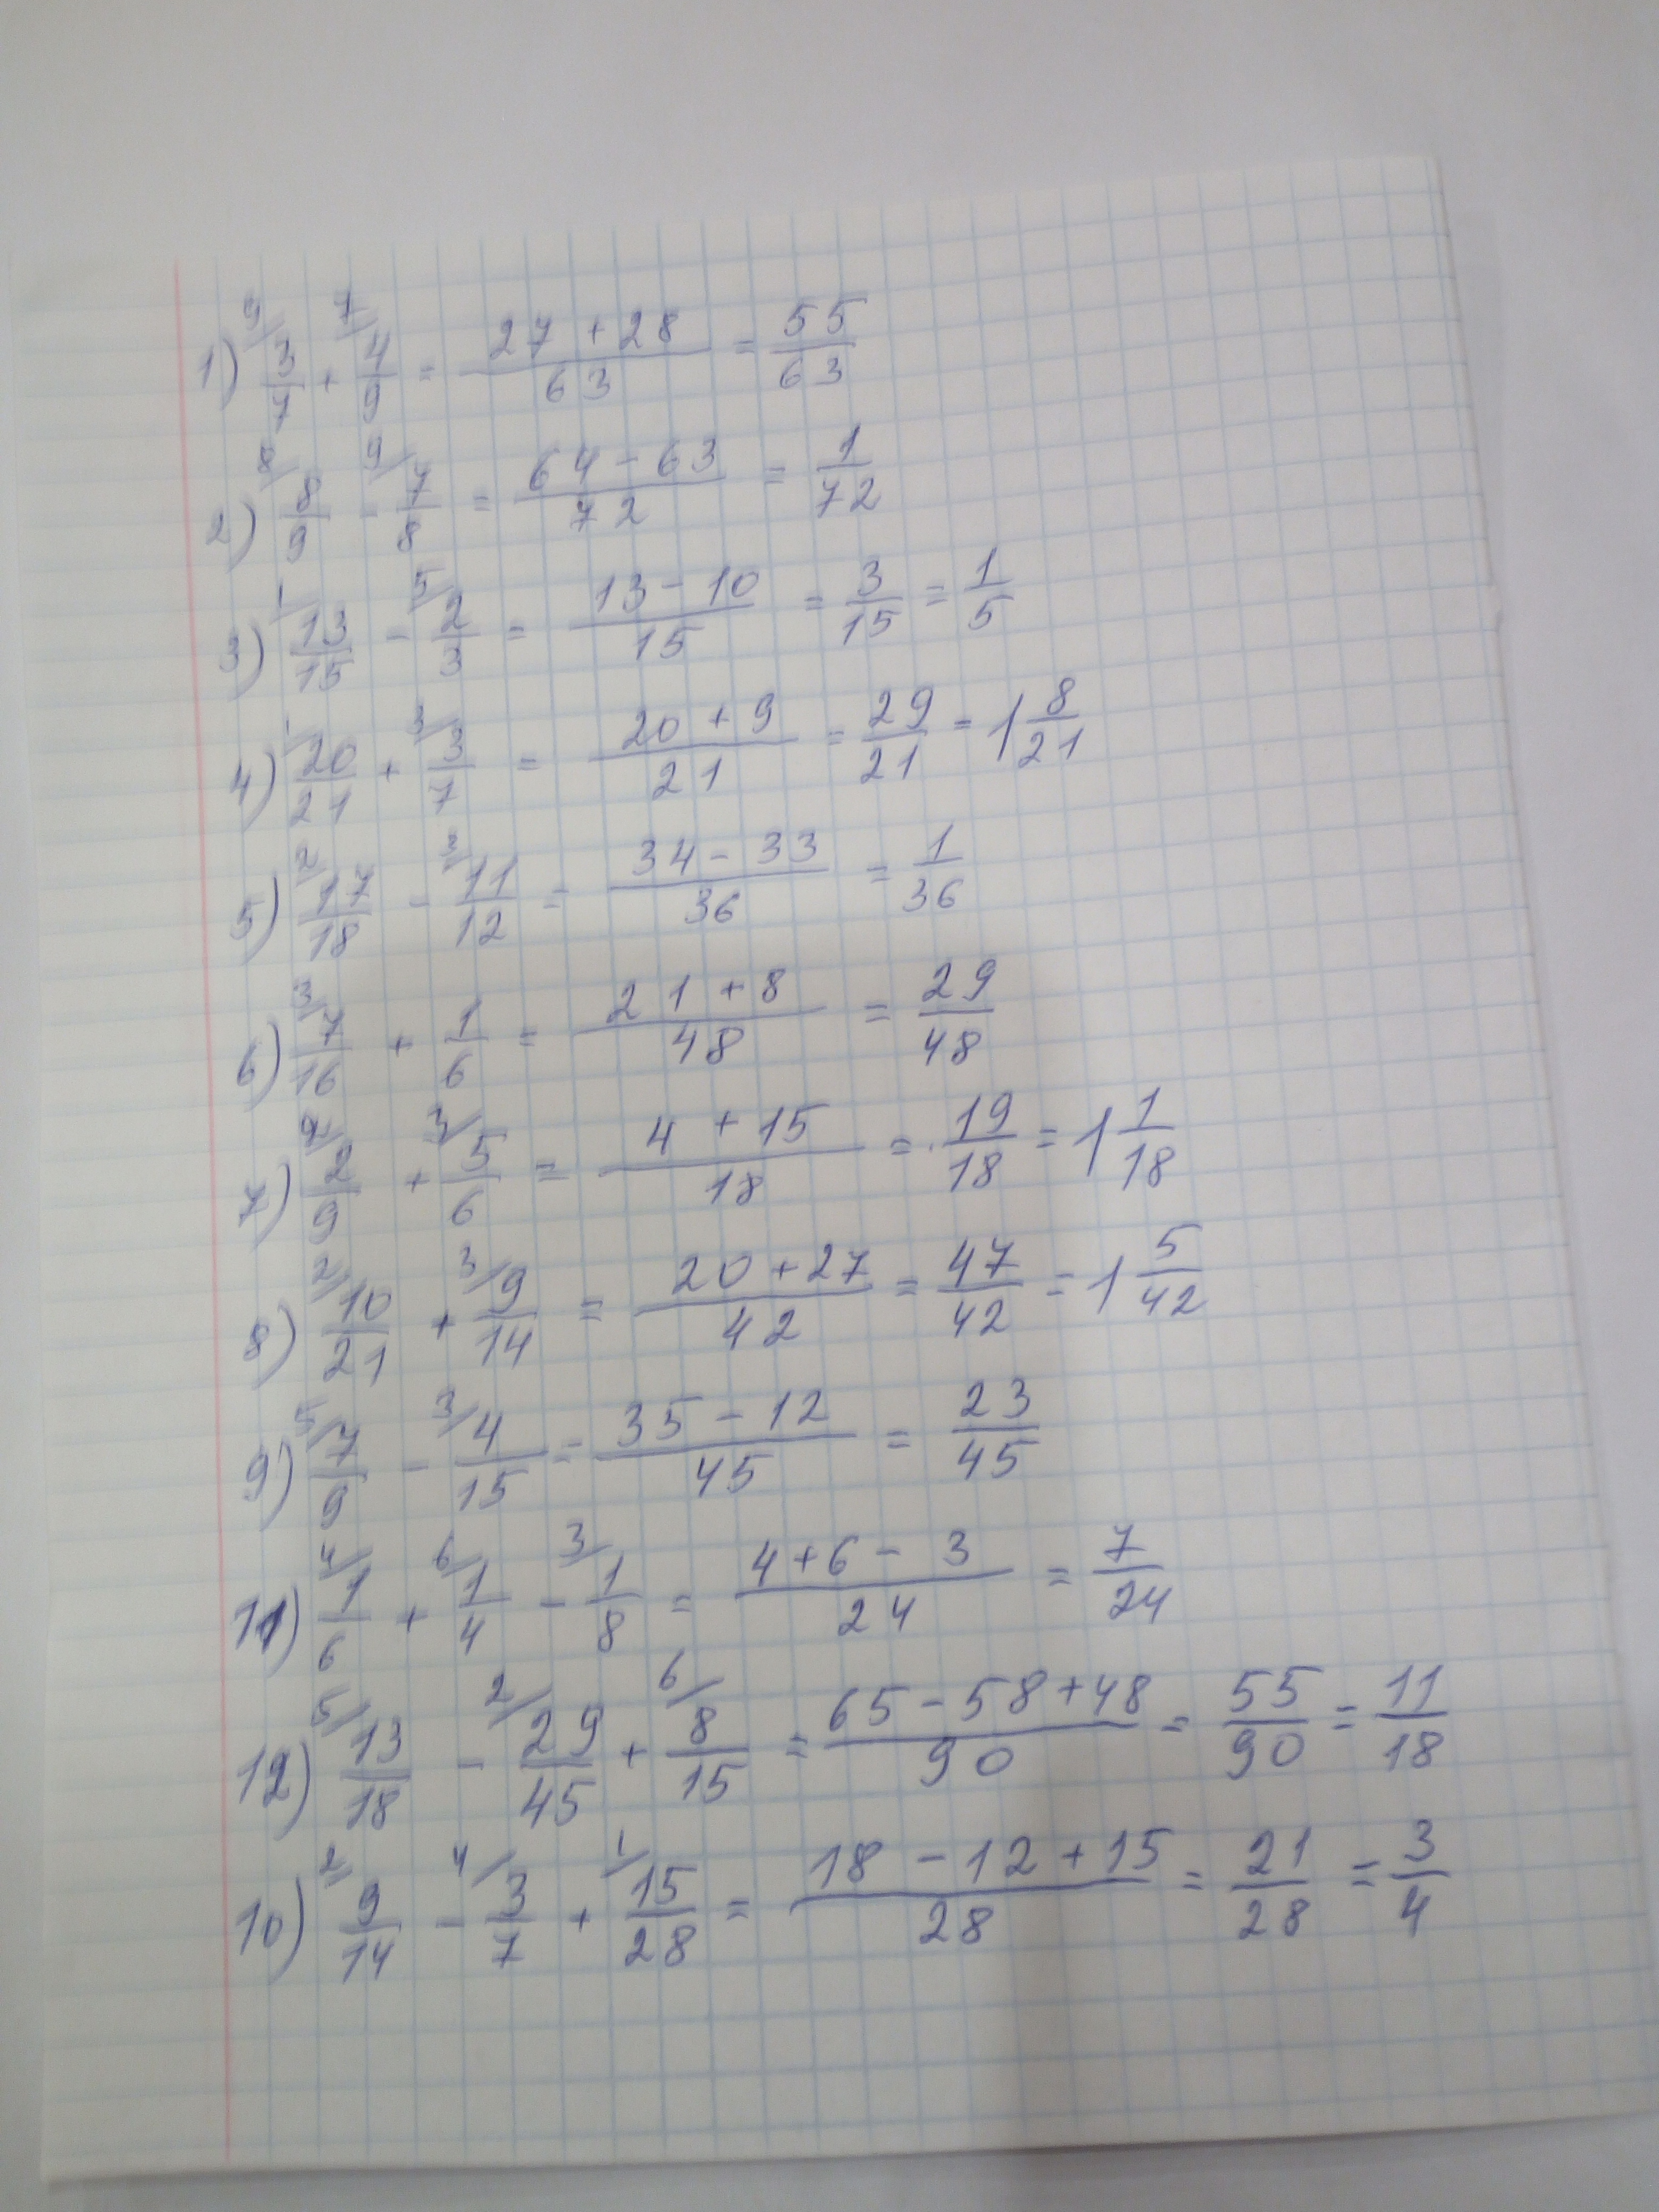 1) 9/ 3/7 + 7/ 4/9 = (27 + 28)/63 = 55/63
2) 8/ 8/9 - 9/ 7/8 = (64 - 63)/72 = 1/72
3) 1/ 13/15 - 5/ 2/3 = (13 - 10)/15 = 3/15 = 1/5
4) 1/ 20/21 + 3/ 3/7 = (20 + 9)/21 = 29/21 = 1 8/21
5) 2/ 17/18 - 3/ 11/12 = (34 - 33)/36 = 1/36
6) 3/ 7/16 + 1/6 = (21 + 8)/48 = 29/48
7) 2/ 2/9 + 3/ 5/6 = (4 + 15)/18 = 19/18 = 1 1/18
8) 2/ 10/21 + 3/ 9/14 = (20 + 27)/42 = 47/42 = 1 5/42
9) 5/ 7/9 - 3/ 4/15 = (35 - 12)/45 = 23/45
11) 4/ 1/6 + 6/ 1/4 - 3/ 1/8 = (4 + 6 - 3)/24 = 7/24
12) 5/ 13/18 - 2/ 29/45 + 6/ 8/15 = (65 - 58 + 48)/90 = 55/90 = 11/18
10) 2/ 9/14 - 4/ 3/7 + 1/ 15/28 = (18 - 12 + 15)/28 = 21/28 = 3/4